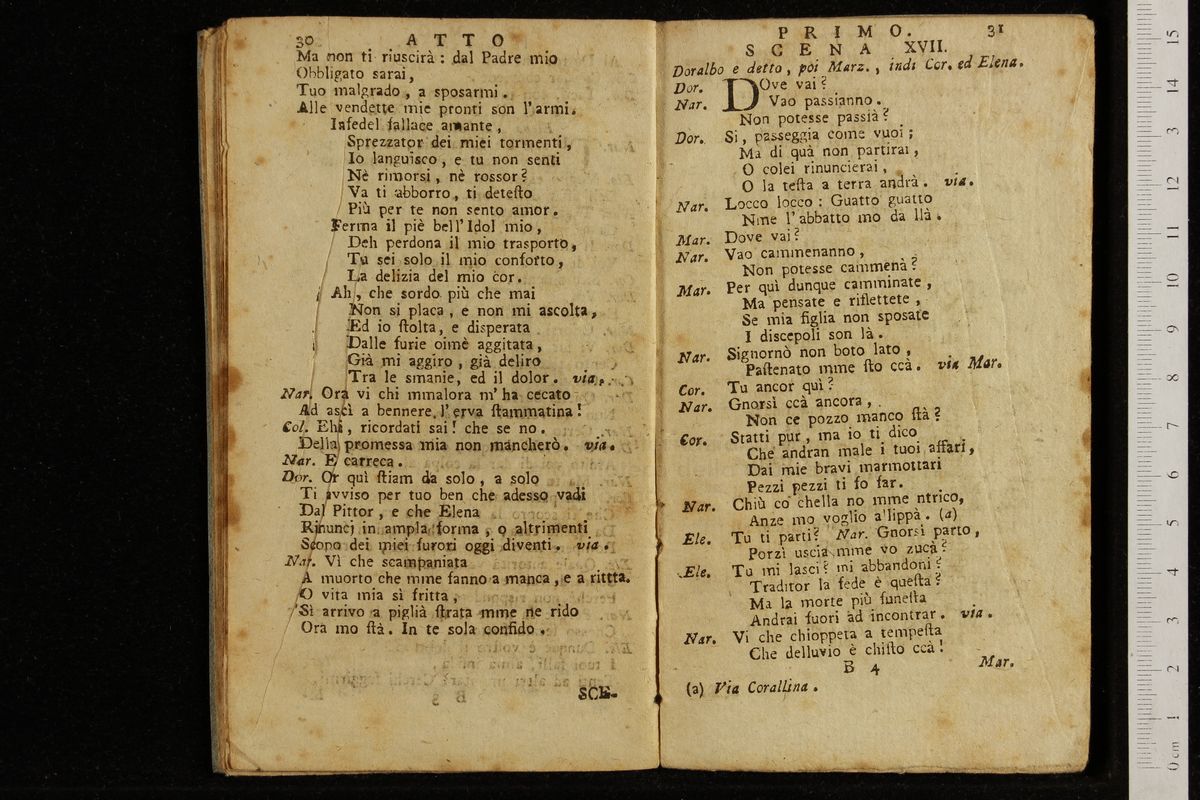 30 ATTO
Ma non ti riuscirà : dal Padre mio
Obbligato sarai,
Tuo malgrado , a sposarmi .
Alle vendette mie pronti son l'armi.
Infedel fallace amante ,
Sprezzator dei miei tormenti ,
Io languisco , e tu non senti
Nè rimorsi , nè rossor ?
Va ti abborro , ti detesto
Più per te non sento amor .
Ferma il piè bell' Idol mio ,
Deh perdona il mio trasporto ,
Tu sei solo il mio conforto ,
La delizia del mio cor .
Ah , che sordo più che mai
Non si placa , e non mi ascolta ,
Ed io stolta , e disperata
Dalle furie oimè aggitata ,
Già mi aggiro , già deliro
Tra le smanie , ed il dolor . via .
Nar. Ora vi chi mmalora m' ha cecato
Ad ascì a bennere l' erva stammatina !
Col. Ehi , ricordati sai ! che se no .
Della promessa mia non mancherò . via .
Nar. E carreca .
Dor. Or quì stiam da solo , a solo
Ti avviso per tuo ben che adesso vadi
Dal Pittor , e che Elena
Rinuncj in ampla forma , o altrimenti
Scopo dei miei furori oggi diventi . via .
Nar. Vì che scampaniata
A muorto che mme fanno a manca , e a rittta.
O vita mia sì fritta ,
Sì arrivo a piglià strata mme ne rido
Ora mo stà . In te sola confido .
SCE-
PRIMO. 31
SCENA XVII.
Doralbo e detto , poi Marz. , indi Cor. ed Elena .
Dor. DOve vai ?
Nar. Vao passianno .
Non potesse passià ?
Dor. Si , passeggia come vuoi ;
Ma di quà non partirai ,
O colei rinuncierai ,
O la testa a terra andrà . via .
Nar. Locco locco : Guatto guatto
Nme l' abbatto mo da llà .
Mar. Dove vai ?
Nar. Vao cammenanno ,
Non potesse cammenà ?
Mar. Per quì dunque camminate ,
Ma pensate e riflettete ,
Se mia figlia non sposate
I discepoli son là .
Nar. Signornò non boto lato ,
Pastenato mme sto ccà . via Mar.
Cor. Tu ancor quì ?
Nar. Gnorsì ccà ancora ,
Non ce pozzo manco stà ?
Cor. Statti pur , ma io ti dico
Che andran male i tuoi affari ,
Dai mie bravi marmottari
Pezzi pezzi ti fo far .
Nar. Chiù co chella no mme ntrico,
Anze mo voglio a'lippà . (a)
Ele. Tu ti parti ? Nar. Gnorsì parto ,
Porzì uscia mme vo zucà ?
Ele. Tu mi lasci ? mi abbandoni ?
Traditor la fede è questa ?
Ma la morte più funesta
Andrai fuori ad incontrar . via .
Nar. Vi che chioppeta a tempesta
Che delluvio è chisto ccà !
B 4 Mar.
(a) Via Corallina .
0 cm 1 2 3 4 5 6 7 8 9 10 11 12 13 14 15